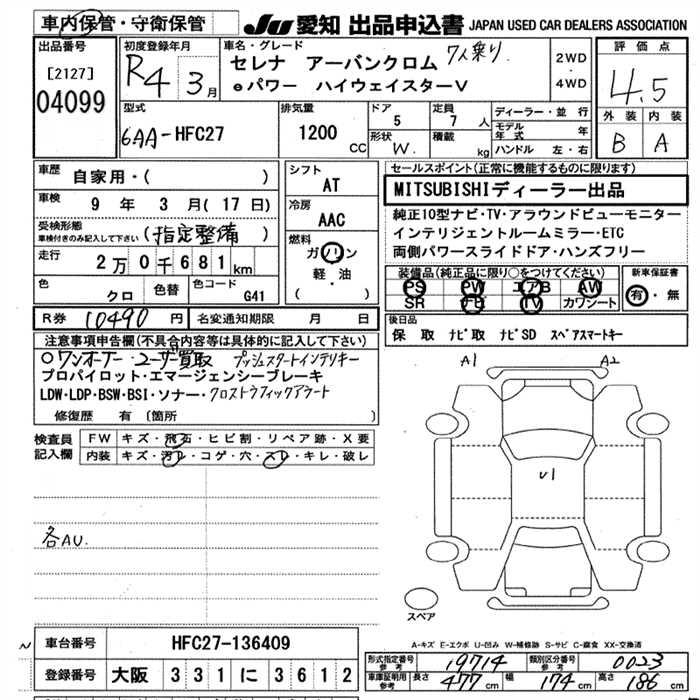 車内保管・守衛保管
JU 愛知 出品申込書 JAPAN USED CAR DEALERS ASSOCIATION
出品番号
[2127]
04099
初度登録年月
R4 3月
車名・グレード
セレナ アーバンクロム 7人乗り
eパワー ハイウェイスターV
2WD
・
4WD
評価点
4.5
外装 内装
B A
型式
6AA-HFC27
排気量
1200 CC
ドア
5
形状
W.
定員
7人
積載
kg
ディーラー・並行
モデル年式 年
ハンドル 左・右
車歴
自家用・( )
車検
9年3月(17日)
受検形態
車検付きのみ記入して下さい
(指定整備)
走行
2万0千681km
色
クロ
色替
色コード
G41
シフト
AT
冷房
AAC
燃料
ガソリン
軽・油
( )
セールスポイント(正常に機能するものに限ります)
MITSUBISHIディーラー出品
純正10型ナビ・TV・アラウンドビューモニター
インテリジェントルームミラー・ETC
両側パワースライドドア・ハンズフリー
装備品(純正品に限り○をつけてください)
PS PW エアB AW
SR ナビ TV カワシート
新車保証書
有・無
R券 10490円 名変通知期限 月 日
後日品
保 取 ナビ取 ナビSD スペアスマートキー
注意事項申告欄(不具合内容等は具体的に記入して下さい)
○ワンオーナー・ユーザー買取 プッシュスタートインテリキー
プロパイロット・エマージェンシーブレーキ
LDW・LDP・BSW・BSI・ソナー・クロストラフィックアラート
修復歴 有 (箇所
検査員記入欄
FW キズ・飛石・ヒビ割・リペア跡・X要
内装 キズ・汚レ・コゲ・穴・スレ・キレ・破レ
各AU.
A1 A2
U1
スペア
A-キズ E-エクボ U-凹み W-補修跡 S-サビ C-腐食 XX-交換済
車台番号 HFC27-136409
登録番号 大阪 331に3612
形式指定番号参考 19714 類別区分番号参考 0023
車庫証明用参考 長さ 477cm 幅 174cm 高さ 186cm